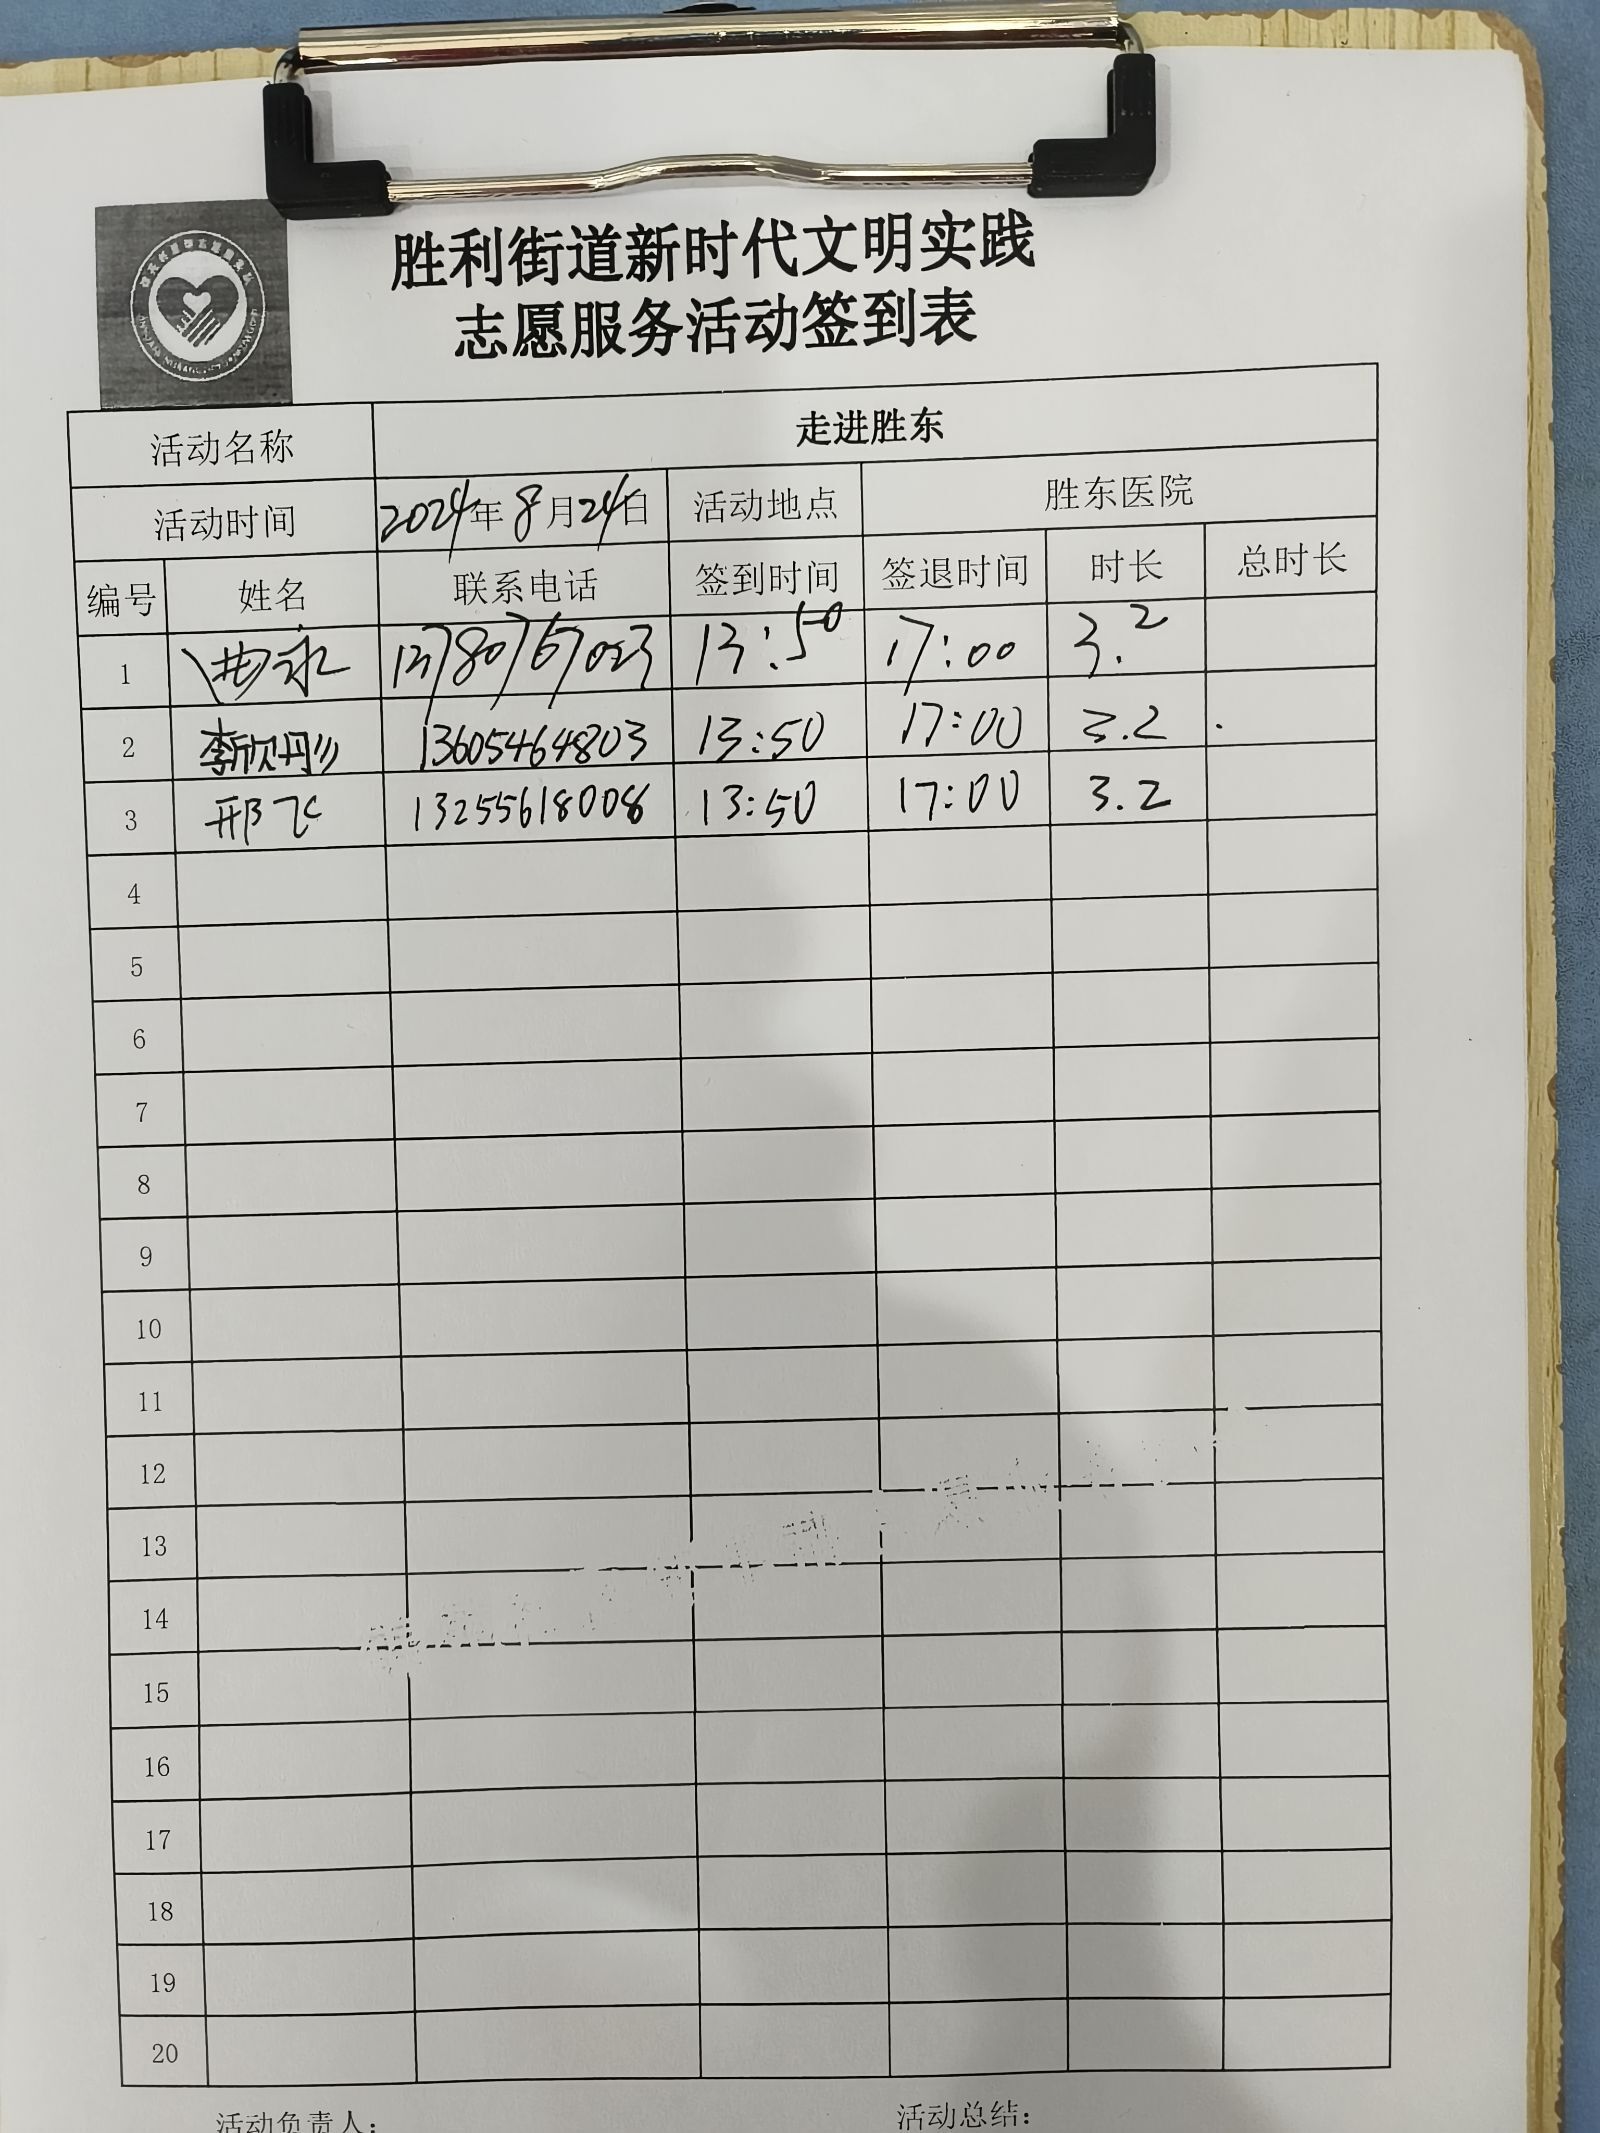 胜利街道新时代文明实践
志愿服务活动签到表
活动名称 走进胜东
活动时间 2024年8月24日 活动地点 胜东医院
编号 姓名 联系电话 签到时间 签退时间 时长 总时长
1 13:50 17:00 3.2
2 李欣彤 13605464803 13:50 17:00 3.2
3 邢飞 13255618008 13:50 17:00 3.2
4
5
6
7
8
9
10
11
12
13
14
15
16
17
18
19
20
活动负责人： 活动总结：